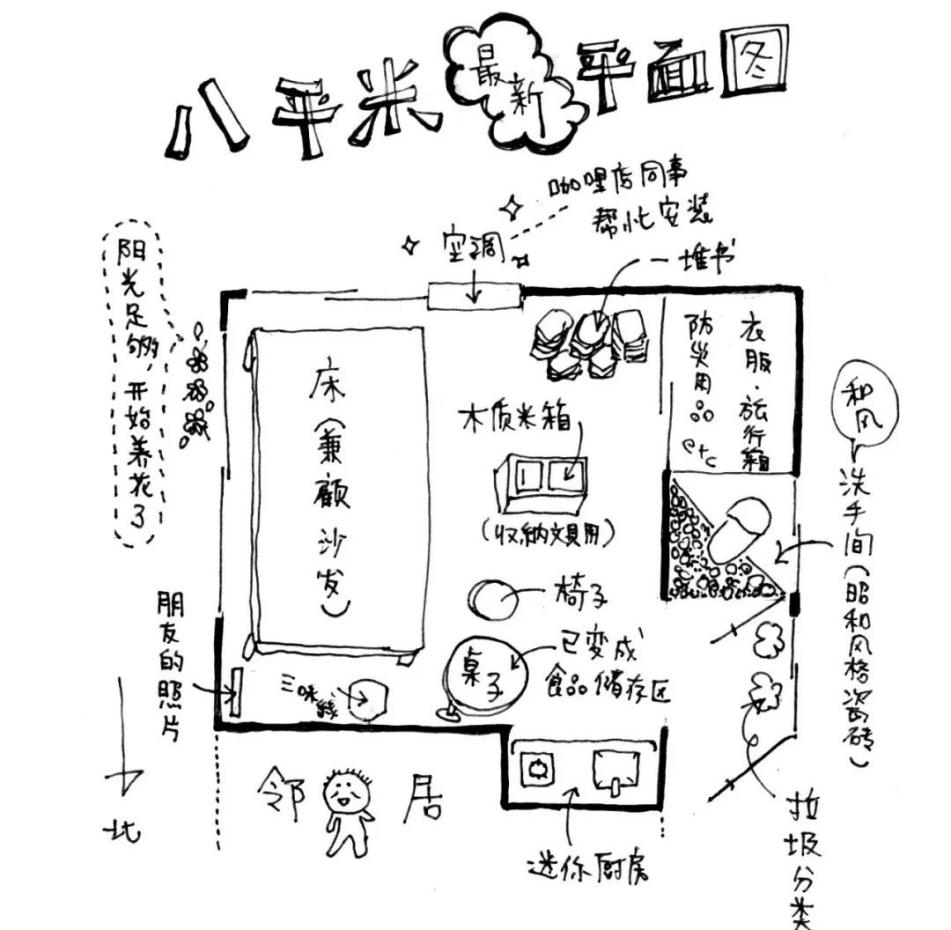 八平米最新平面图
咖哩店同事
帮忙安装
空调
一堆书
阳光足够,开始养花了
床(兼顾沙发)
木质米箱
(收纳文具用)
防灾用品etc
衣服·旅行箱
和风
洗手间(昭和风格瓷砖)
椅子
桌子
已变成
食品储存区
朋友的照片
三味线
北
邻居
迷你厨房
垃圾分类